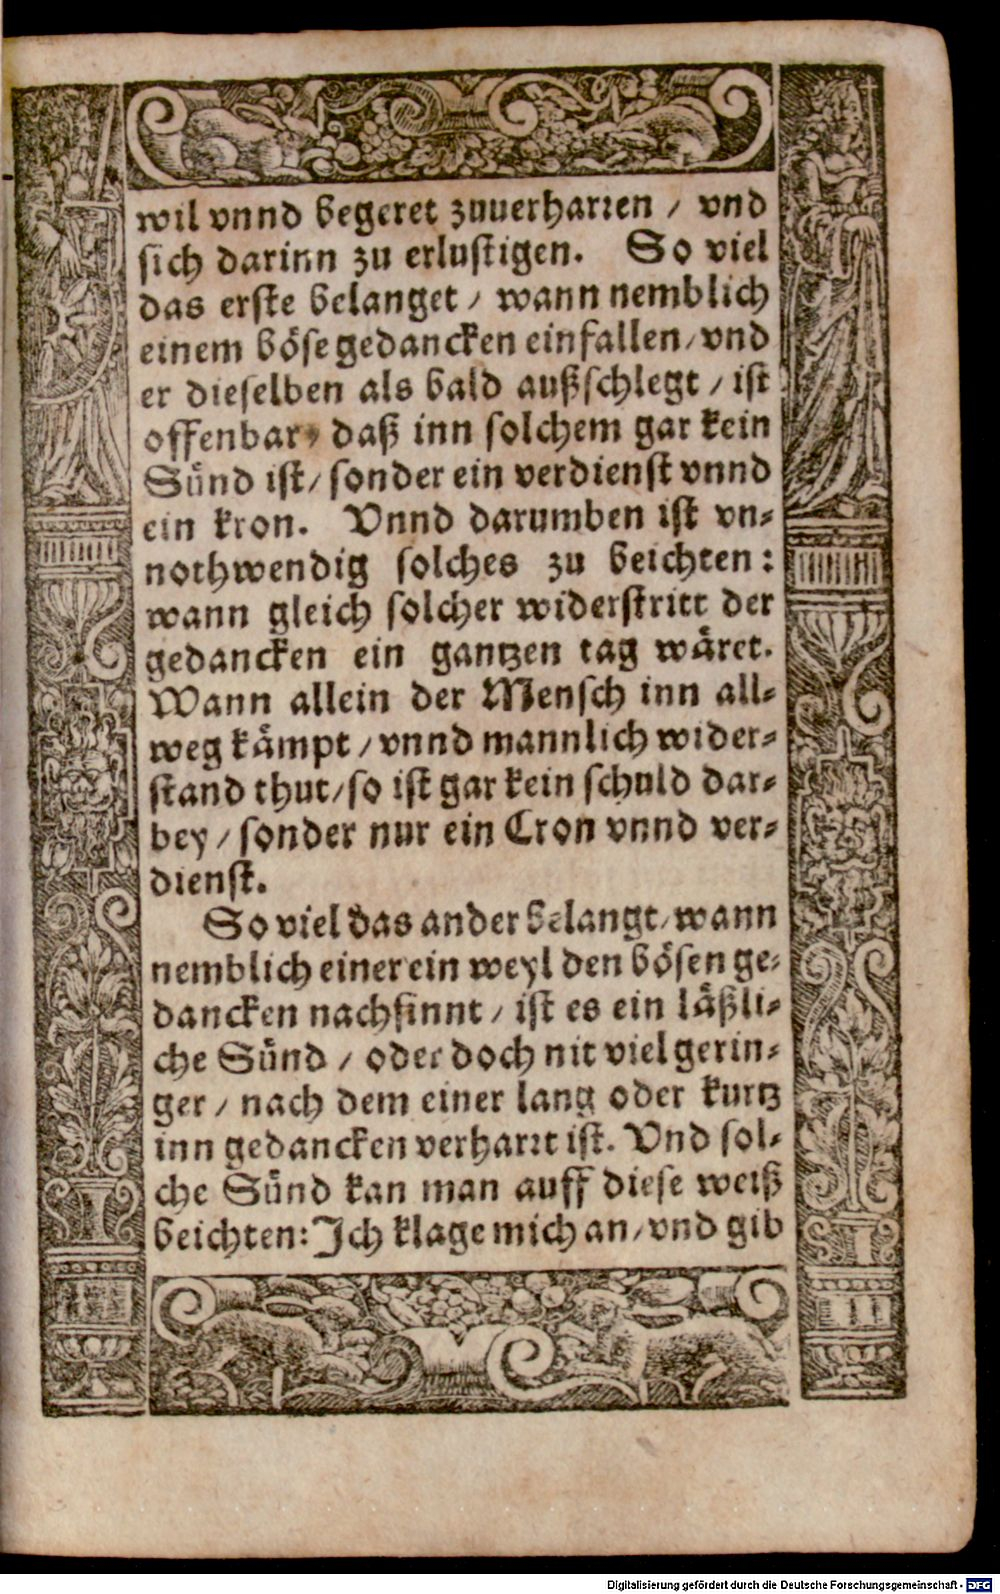 wil vnnd begeret zuuerharren / vnd
sich darinn zu erlustigen. So viel
das erste belanget / wann nemblich
einem böse gedancken einfallen / vnd
er dieselben als bald außschlegt / ist
offenbar, daß inn solchem gar kein
Sünd ist / sonder ein verdienst vnnd
ein kron. Vnnd darumben ist vn-
nothwendig solches zu beichten:
wann gleich solcher widerstritt der
gedancken ein gantzen tag wäret.
Wann allein der Mensch inn all-
weg kämpt / vnnd mannlich wider-
stand thut / so ist gar kein schuld dar-
bey / sonder nur ein Cron vnnd ver-
dienst.
So viel das ander belangt / wann
nemblich einer ein weyl den bösen ge-
dancken nachsinnt / ist es ein läßli-
che Sünd / oder doch nit viel gerin-
ger / nach dem einer lang oder kurtz
inn gedancken verharrt ist. Vnd sol-
che Sünd kan man auff diese weiß
beichten: Ich klage mich an / vnd gib
Digitalisierung gefördert durch die Deutsche Forschungsgemeinschaft - DFG